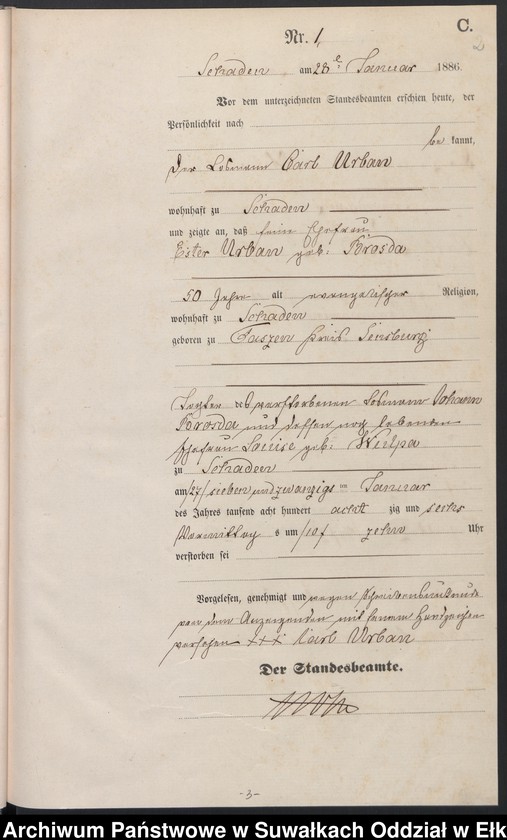 C.
2
Nr. 1
Schaden am 28 e Januar 1886.
Vor dem unterzeichneten Standesbeamten erschien heute, der
Persönlichkeit nach
be kannt,
der Losmann Carl Urban
wohnhaft zu Schaden
und zeigte an, daß seine Ehefrau
Ester Urban geb: Brosda
50 Jahre alt evangelischer Religion,
wohnhaft zu Schaden
geboren zu Faszen Kreis Sensburg
Tochter des verstorbenen Losmann Johann
Brosda und dessen noch lebenden
Ehefrau Louise geb:
zu Schaden
am /27/ sieben und zwanzigs ten Januar
des Jahres tausend acht hundert acht zig und sechs
Vormittag s um /10/ zehn Uhr
verstorben sei
Vorgelesen, genehmigt und wegen Schreibensunkunde
von dem Anzeigenden mit seinem Handzeichen
versehen +++ Carl Urban
Der Standesbeamte.
-3-
Archiwum Państwowe w Suwałkach Oddział w Ełk